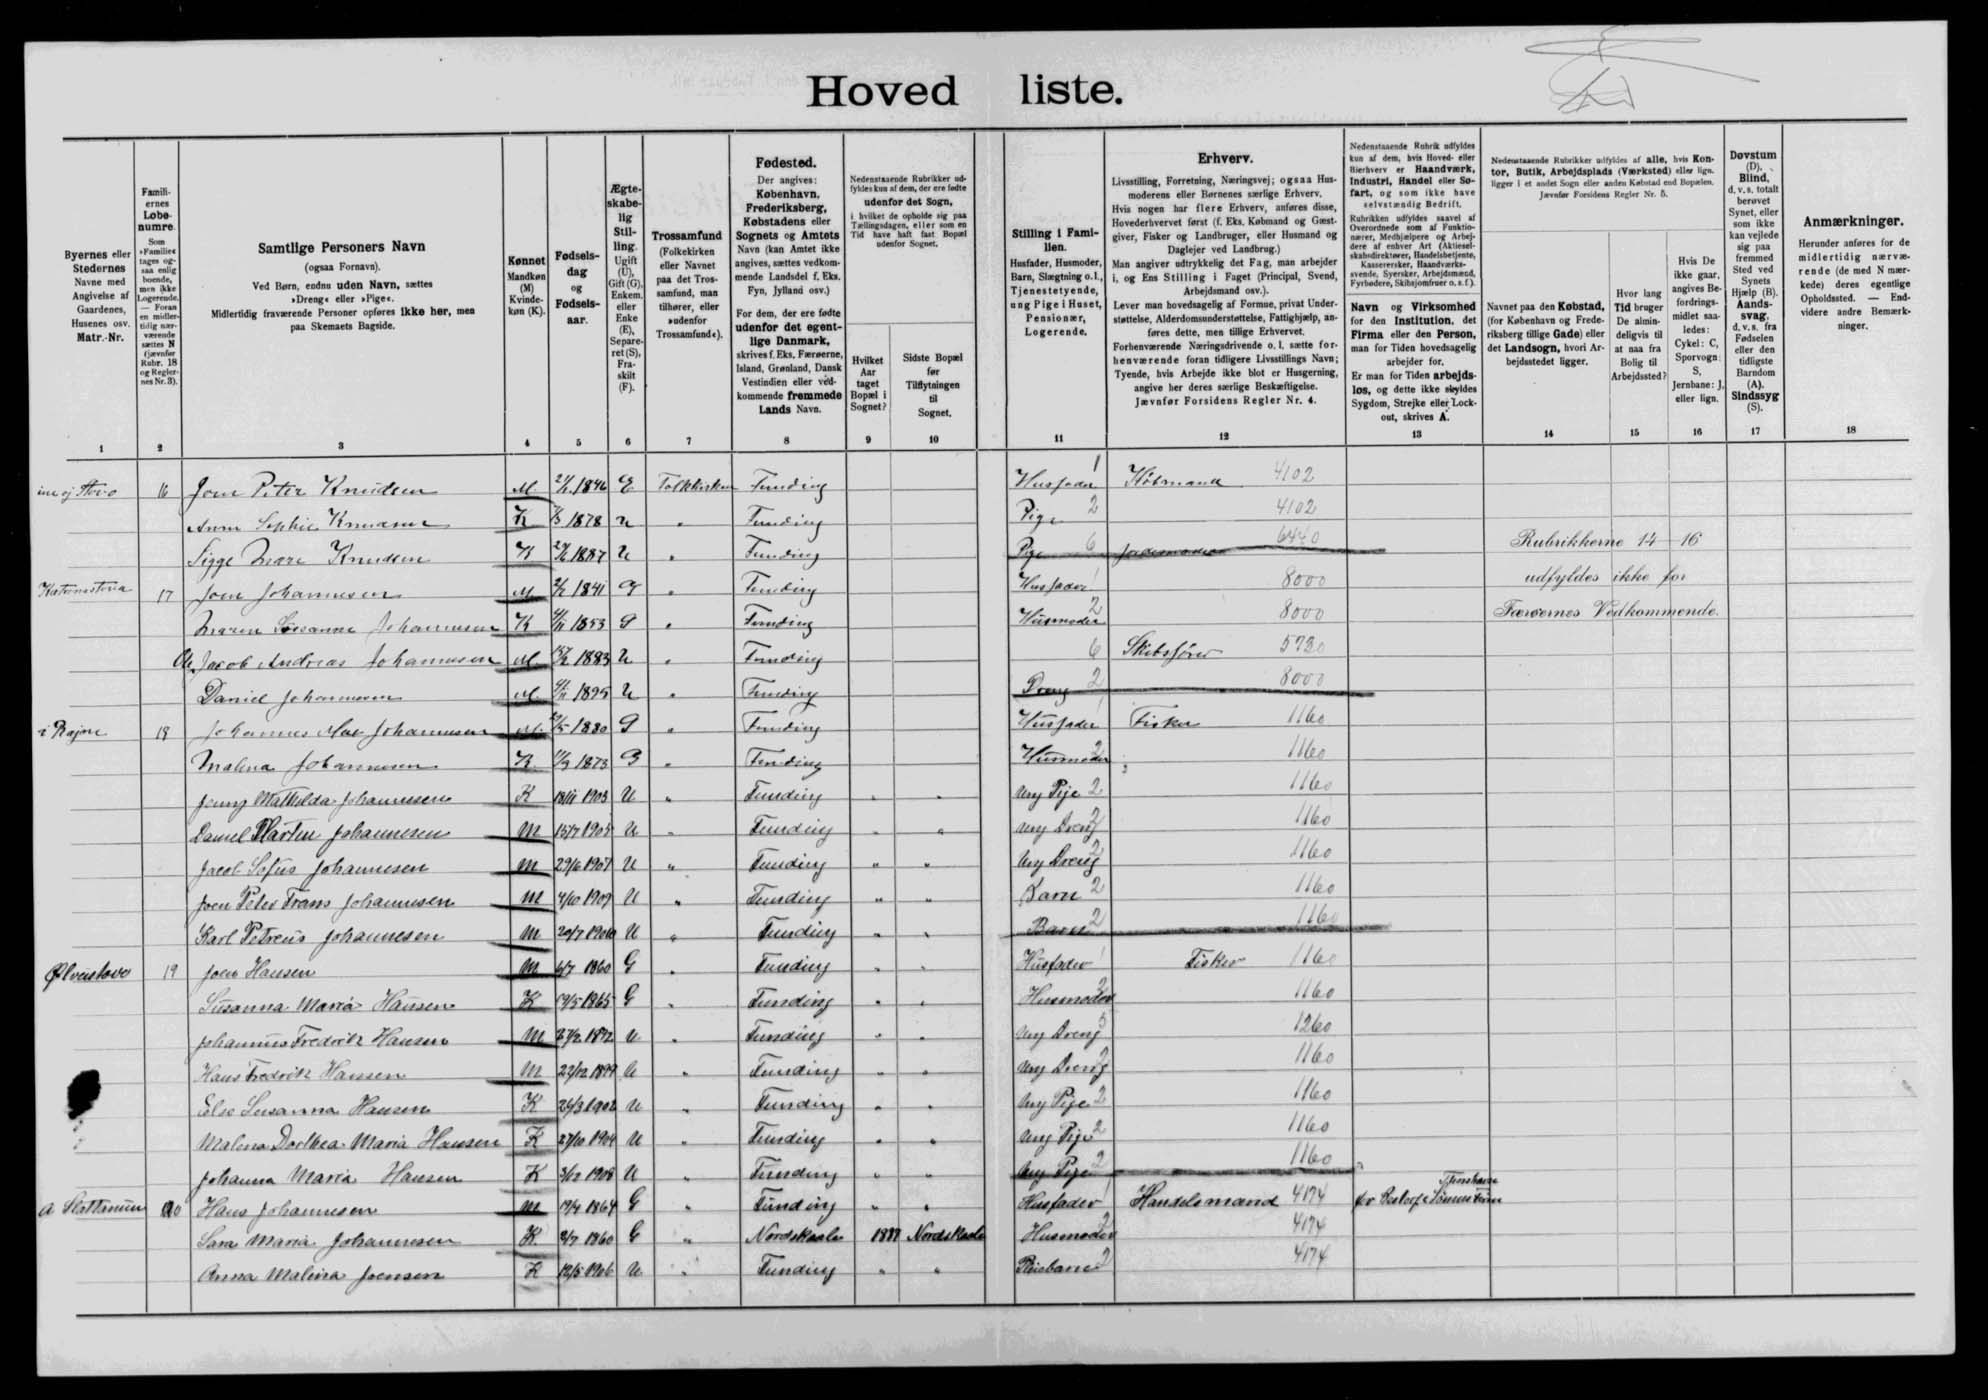 Hovedliste.
Byernes eller Stedernes Navne med Angivelse af Gaardenes, Husenes osv. Matr.-Nr.
Familiernes Løbenumre. Som »Familie« tages ogsaa enlig boende, men ikke Logerende. — Foran en midlertidig nærværende sættes N (jævnfør Rubr. 18 og Regler- nes Nr. 3).
Samtlige Personers Navn
(ogsaa Fornavn).
Ved Børn, endnu uden Navn, sættes
»Dreng« eller »Pige«.
Midlertidig fraværende Personer opføres ikke her, men
paa Skemaets Bagside.
Kønnet Mandkøn (M) Kvindekøn (K).
Fødselsdag og Fødselsaar.
Ægteskabelig Stilling. Ugift (U), Gift (G), Enkem. eller Enke (E), Separeret (S), Fraskilt (F).
Trossamfund (Folkekirken eller Navnet paa det Trossamfund, man tilhører, eller »udenfor Trossamfund«).
Fødested.
Der angives: København, Frederiksberg, Købstadens eller Sognets og Amtets Navn (kan Amtet ikke angives, sættes vedkommende Landsdel f. Eks. Fyn, Jylland osv.)
For dem, der ere fødte udenfor det egentlige Danmark, skrives f. Eks. Færøerne, Island, Grønland, Dansk Vestindien eller vedkommende fremmede Lands Navn.
Nedenstaaende Rubrikker udfyldes kun af dem, der ere fødte udenfor det Sogn, i hvilket de opholde sig paa Tællingsdagen, eller som en Tid have haft fast Bopæl udenfor Sognet.
Hvilket Aar taget Bopæl i Sognet?
Sidste Bopæl før Tilflytningen til Sognet.
Stilling i Familien.
Husfader, Husmoder, Barn, Slægtning o. l., Tjenestetyende, ung Pige i Huset, Pensionær, Logerende.
Erhverv.
Livsstilling, Forretning, Næringsvej; ogsaa Husmoderens eller Børnenes særlige Erhverv.
Hvis nogen har flere Erhverv, anføres disse, Hovederhvervet først (f. Eks. Købmand og Gæstgiver, Fisker og Landbruger, eller Husmand og Daglejer ved Landbrug.)
Man angiver udtrykkelig det Fag, man arbejder i, og Ens Stilling i Faget (Principal, Svend, Arbejdsmand osv.).
Lever man hovedsagelig af Formue, privat Understøttelse, Alderdomsunderstøttelse, Fattighjælp, anføres dette, men tillige Erhvervet.
Forhenværende Næringsdrivende o. l. sætte forhenværende foran tidligere Livsstillings Navn; Tyende, hvis Arbejde ikke blot er Husgerning, angive her deres særlige Beskæftigelse.
Jævnfør Forsidens Regler Nr. 4.
Nedenstaaende Rubrik udfyldes kun af dem, hvis Hoved- eller Bierhverv er Haandværk, Industri, Handel eller Søfart, og som ikke have selvstændig Bedrift.
Rubrikken udfyldes saavel af Overordnede som af Funktionærer, Medhjælpere og Arbejdere af enhver Art (Aktieselskabsdirektører, Handelsbetjente, Kassererersker, Haandværkssvende, Syersker, Arbejdsmænd, Fyrbødere, Skibsjomfruer o. s. f.).
Navn og Virksomhed for den Institution, det Firma eller den Person, man for Tiden hovedsagelig arbejder for.
Er man for Tiden arbejdsløs, og dette ikke skyldes Sygdom, Strejke eller Lockout, skrives A.
Nedenstaaende Rubrikker udfyldes af alle, hvis Kontor, Butik, Arbejdsplads (Værksted) eller lign. ligger i et andet Sogn eller anden Købstad end Bopælen. Jævnfør Forsidens Regler Nr. 5.
Navnet paa den Købstad, (for København og Frederiksberg tillige Gade) eller det Landsogn, hvori Arbejdsstedet ligger.
Hvor lang Tid bruger De almindeligvis til at naa fra Bolig til Arbejdssted?
Hvis De ikke gaar, angives Befordringsmidlet saaledes: Cykel: C, Sporvogn: S, Jernbane: J, eller lign.
Døvstum (D). Blind, d. v. s. totalt berøvet Synet, eller som ikke kan vejlede sig paa fremmed Sted ved Synets Hjælp (B). Aandssvag, d. v. s. fra Fødselen eller den tidligste Barndom (A). Sindssyg (S).
Anmærkninger.
Herunder anføres for de midlertidig nærværende (de med N mærkede) deres egentlige Opholdssted. — Endvidere andre Bemærkninger.
1 2 3 4 5 6 7 8 9 10 11 12 13 14 15 16 17 18
16 Joen Peter Knudsen M 1846 E Folkekirken Funding Husfader 1 Købmand 4102
Anna Sophie Knudsen K 1878 U " Funding Pige 2 4102
Sigge Mare Knudsen K 1887 U " Funding Pige 6 Jordemoder 6440 Rubrikkerne 14-16
17 Joen Johannesen M 1841 G " Funding Husfader 1 8000 udfyldes ikke for
Maren Sosanne Johannesen K 1853 G " Funding Husmoder 2 8000 Færøernes Vedkommende.
Ole Jacob Andreas Johannesen M 1883 U " Funding 6 Skibsfører 5720
Daniel Johannesen M 1895 U " Funding Dreng 2 8000
18 Johannes Johannesen M 1880 G " Funding Husfader 1 Fisker 1160
Malena Johannesen K 1873 G " Funding Husmoder 2 1160
Jenny Mathilda Johannesen K 18/11 1903 U " Funding " " Ung Pige 2 1160
Daniel Martin Johannesen M 15/7 1905 U " Funding " " Ung Dreng 2 1160
Jacob Sofus Johannesen M 29/6 1907 U " Funding " " Ung Dreng 2 1160
Joen Peter Frans Johannesen M 4/10 1909 U " Funding " " Barn 2 1160
Karl Petreus Johannesen M 20/7 U " Funding " " Barn 2 1160
19 Joen Hansen M 6/7 1860 G " Funding " " Husfader 1 Fisker 1160
Susanna Maria Hansen K 19/5 1865 G " Funding " " Husmoder 2 1160
Johannes Fredrik Hansen M 27/2 1892 U " Funding " " Ung Dreng 5 1260
Hans Fredrik Hansen M 22/12 1899 U " Funding " " Ung Dreng 2 1160
Else Susanna Hansen K 26/3 1902 U " Funding " " Ung Pige 2 1160
Malena Dorthea Maria Hansen K 27/10 1904 U " Funding " " Ung Pige 2 1160
Johanna Maria Hansen K 1908 U " Funding " " Ung Pige 2 1160
20 Hans Johannesen M 19/4 1864 G " Funding " " Husfader 1 Handelsmand 4174
Sara Maria Johannesen K 2/7 1860 G " Nordskaale 1887 Nordskaale Husmoder 2 4174
Anna Malena Joensen K 19/5 1906 U " Funding " " Pleiebarn 2 4174